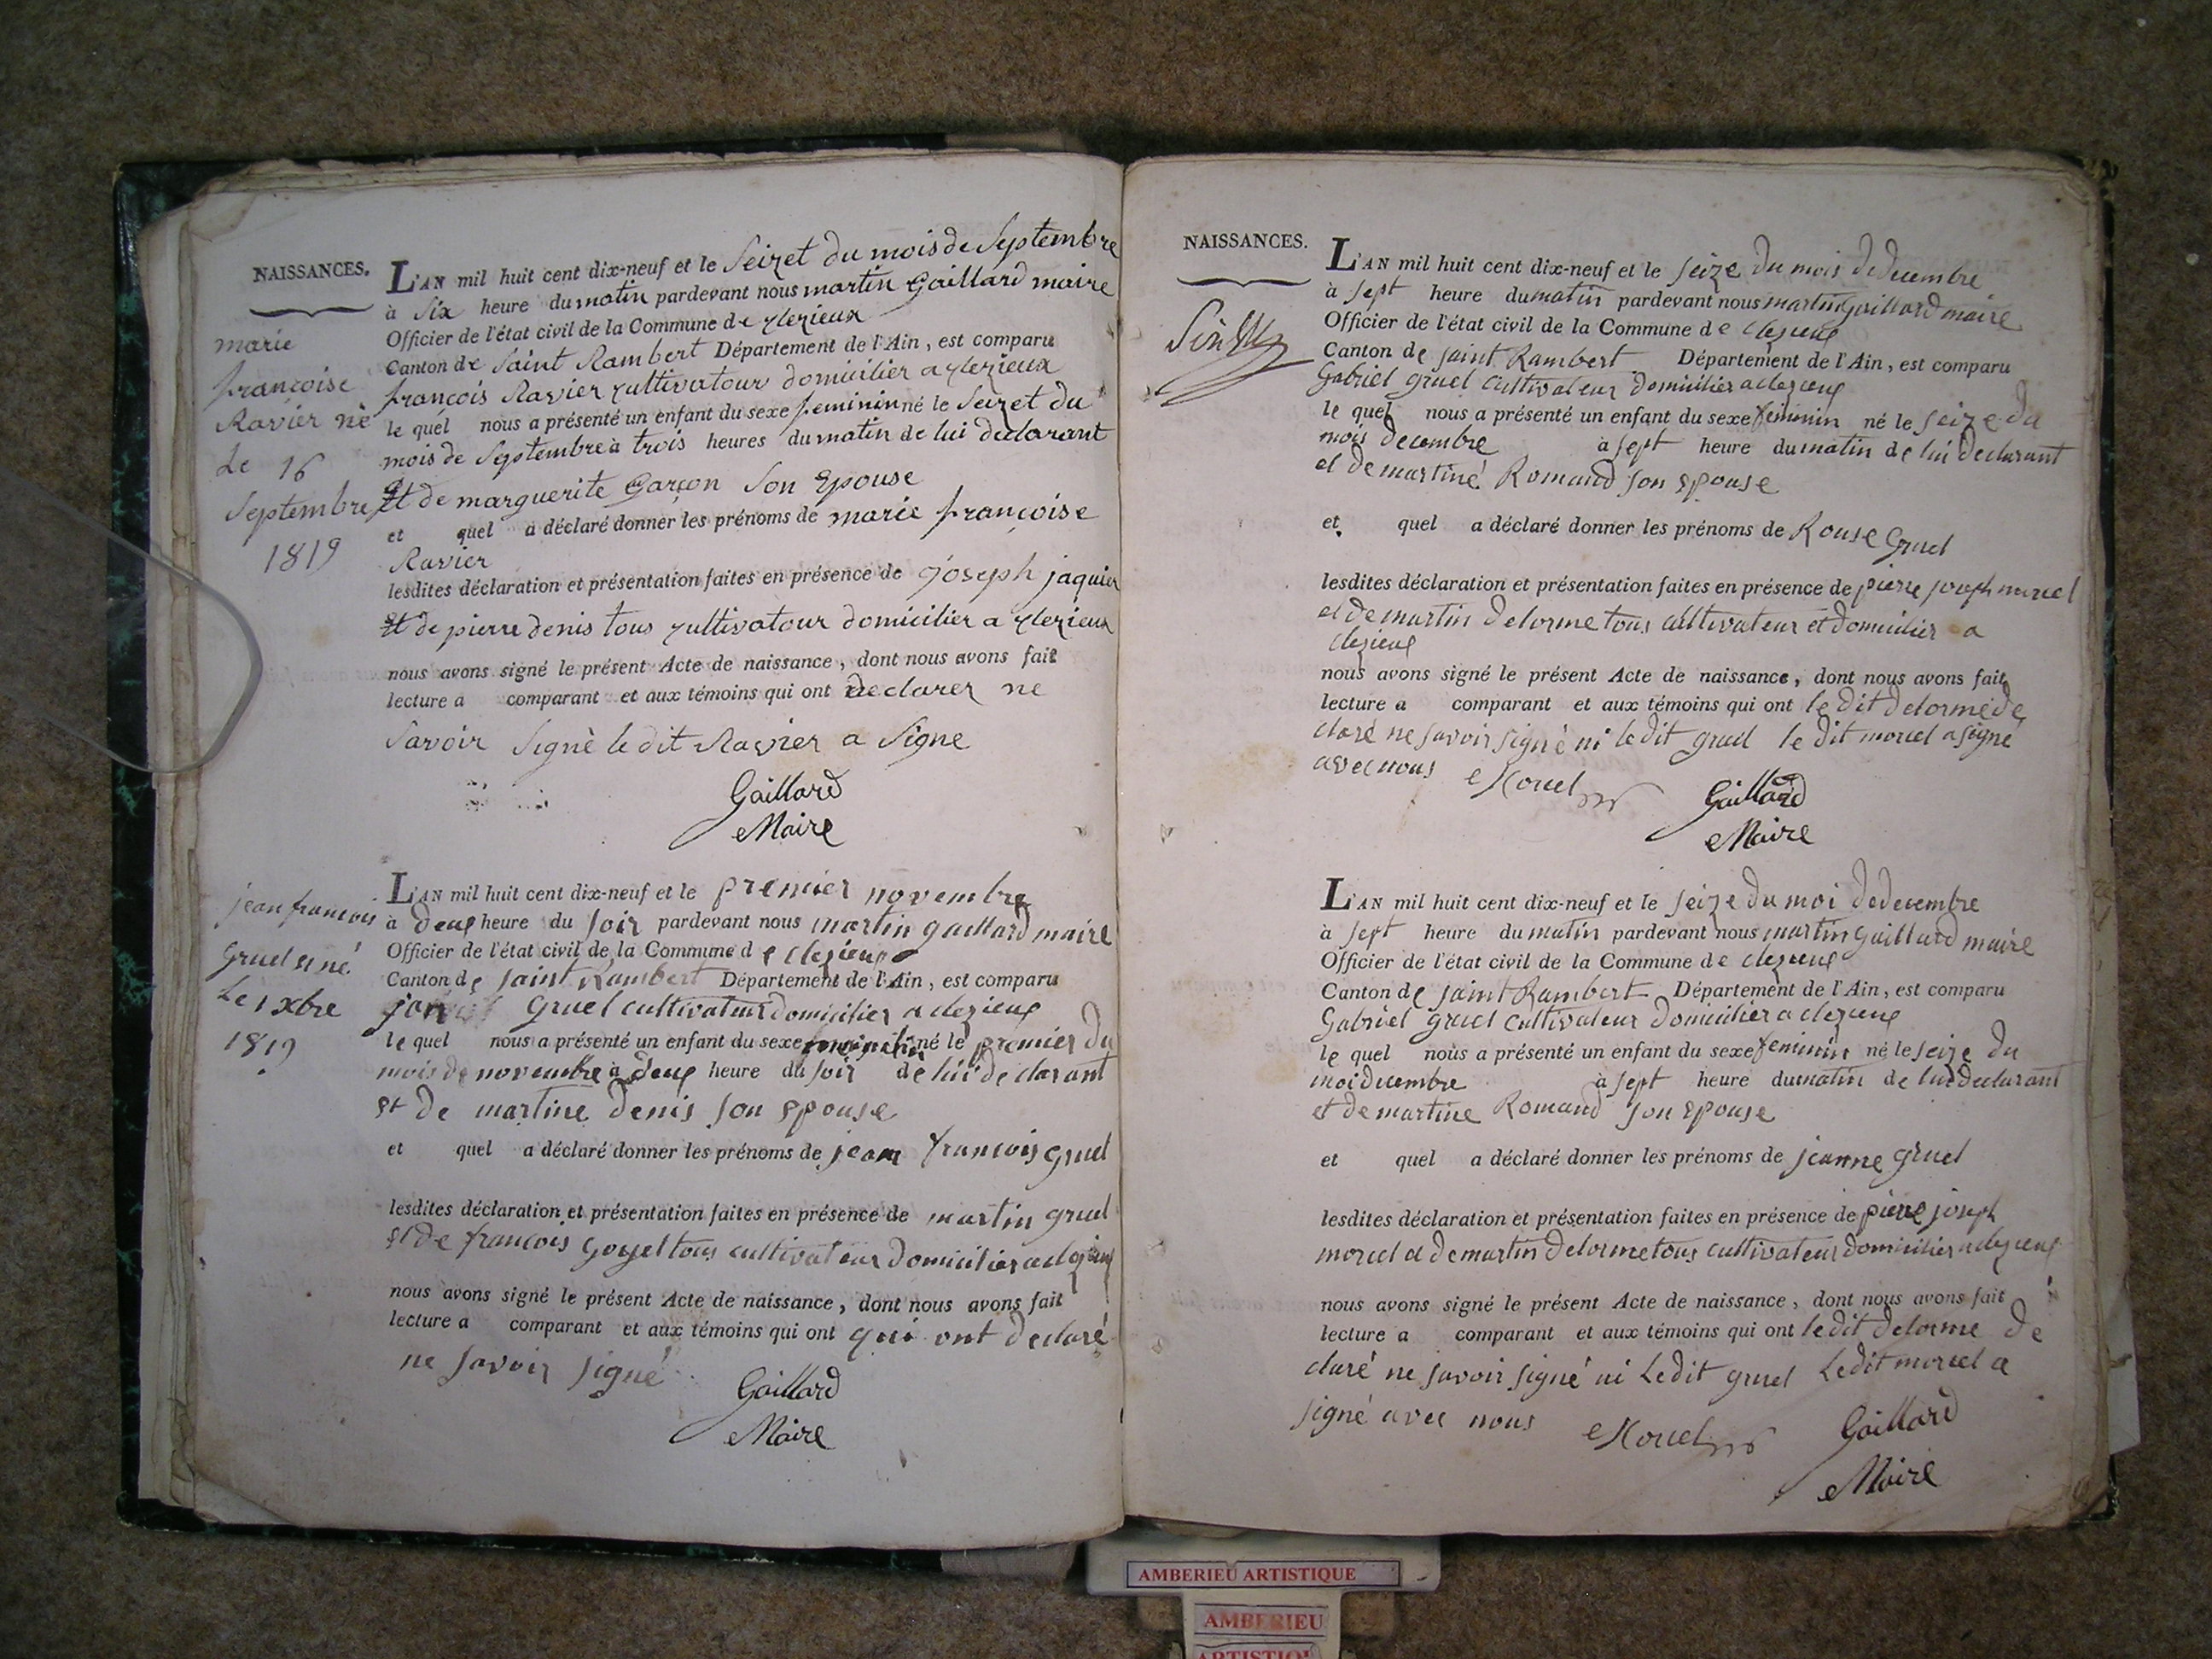 NAISSANCES.
marie
françoise
Ravier né
Le 16
Septembre
1819
L'AN mil huit cent dix-neuf et le Seizet du mois de Septembre
à Six heure du matin pardevant nous martin Gaillard maire
Officier de l'état civil de la Commune de Clezieux
Canton de Saint Rambert Département de l'Ain, est comparu
françois Ravier cultivatour domicilier a Clezieux
le quel nous a présenté un enfant du sexe feminin né le Seizet du
mois de Septembre à trois heures du matin de lui declarant
Et de marguerite Garçon Son Epouse
et quel a déclaré donner les prénoms de marie françoise
Ravier
lesdites déclaration et présentation faites en présence de joseph jaquier
Et de pierre denis tous cultivatour domicilier a Clezieux
nous avons signé le présent Acte de naissance, dont nous avons fait
lecture a comparant et aux témoins qui ont declarer ne
Savoir Signè le dit Ravier a Signe
Gaillard
Maire
jean francois
gruel né
Le 1 xbre
1819
L'AN mil huit cent dix-neuf et le premier novembre
à deux heure du soir pardevant nous martin gaillard maire
Officier de l'état civil de la Commune de clezieux
Canton de saint Rambert Département de l'Ain, est comparu
gruel cultivateur domicilier a clezieux
le quel nous a présenté un enfant du sexe né le premier du
mois de novembre à deux heure du soir de lui declarant
et de martine denis son epouse
et quel a déclaré donner les prénoms de jean francois gruel
lesdites déclaration et présentation faites en présence de martin gruel
et de francois goyet tous cultivateur domicilier a clezieux
nous avons signé le présent Acte de naissance, dont nous avons fait
lecture a comparant et aux témoins qui ont qui ont declaré
ne savoir signé
Gaillard
Maire
NAISSANCES.
L'AN mil huit cent dix-neuf et le seize du mois de decembre
à sept heure du matin pardevant nous martin gaillard maire
Officier de l'état civil de la Commune de clezieux
Canton de saint Rambert Département de l'Ain, est comparu
Gabriel gruel cultivateur domicilier a clezieux
le quel nous a présenté un enfant du sexe feminin né le seize du
mois decembre à sept heure du matin de lui declarant
et de martine Romand son epouse
et quel a déclaré donner les prénoms de Rouse Gruel
lesdites déclaration et présentation faites en présence de pierre joseph morcel
et de martin delorme tous cultivateur et domicilier a
clezieux
nous avons signé le présent Acte de naissance, dont nous avons fait
lecture a comparant et aux témoins qui ont le dit delorme de
claré ne savoir signé ni le dit gruel le dit morcel a signé
avec nous Morcel
Gaillard
Maire
L'AN mil huit cent dix-neuf et le seize du moi de decembre
à sept heure du matin pardevant nous martin gaillard maire
Officier de l'état civil de la Commune de clezieux
Canton de saint Rambert Département de l'Ain, est comparu
Gabriel gruel cultivateur domicilier a clezieux
le quel nous a présenté un enfant du sexe feminin né le seize du
moi decembre à sept heure du matin de lui declarant
et de martine Romand son epouse
et quel a déclaré donner les prénoms de jeanne gruel
lesdites déclaration et présentation faites en présence de pierre joseph
morcel et de martin delorme tous cultivateur domicilier a clezieux
nous avons signé le présent Acte de naissance, dont nous avons fait
lecture a comparant et aux témoins qui ont le dit delorme de
claré ne savoir signé ni Ledit gruel Ledit morcel a
signé avec nous Morcel
Gaillard
Maire
AMBERIEU ARTISTIQUE
AMBERIEU
ARTISTIQUE